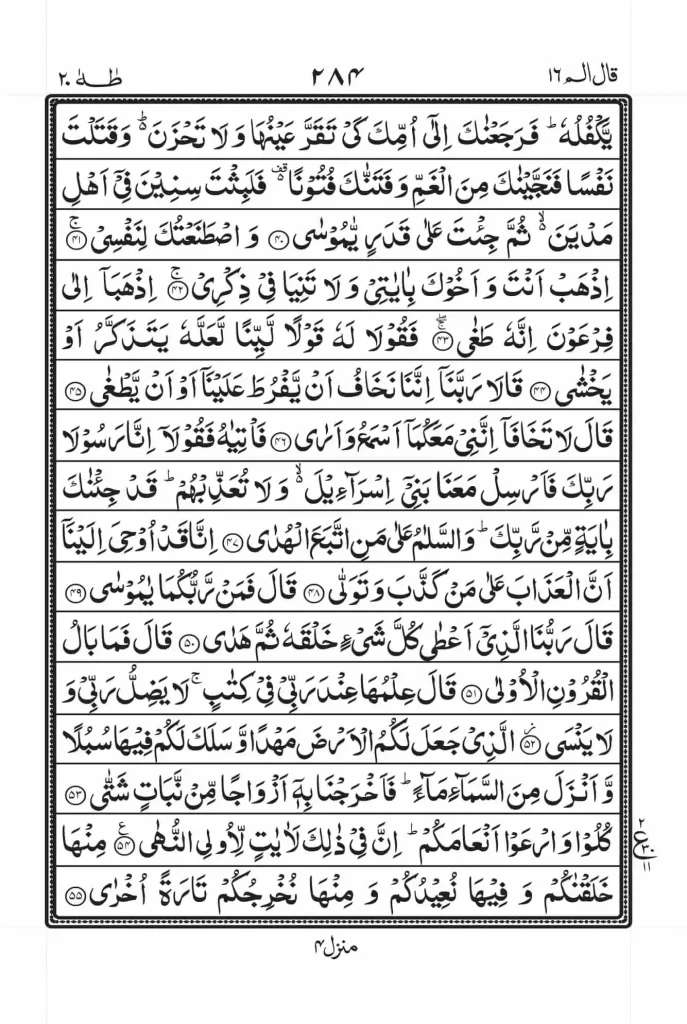 قال الم ١٦ ٢٨٤ طٰهٰ ٢٠
يَّكْفُلُهٗ ؕ فَرَجَعْنٰكَ اِلٰۤى اُمِّكَ كَىْ تَقَرَّ عَيْنُهَا وَ لَا تَحْزَنَ ؕ۬ وَقَتَلْتَ
نَفْسًا فَنَجَّيْنٰكَ مِنَ الْغَمِّ وَ فَتَنّٰكَ فُتُوْنًا ۫۬ فَلَبِثْتَ سِنِيْنَ فِىْۤ اَهْلِ
مَدْيَنَ ۙ۬ ثُمَّ جِئْتَ عَلٰى قَدَرٍ يّٰمُوْسٰى ﴿۴۰﴾ وَ اصْطَنَعْتُكَ لِنَفْسِىْ ۚ﴿۴۱﴾
اِذْهَبْ اَنْتَ وَ اَخُوْكَ بِاٰيٰتِىْ وَ لَا تَنِيَا فِىْ ذِكْرِىْ ۚ﴿۴۲﴾ اِذْهَبَاۤ اِلٰى
فِرْعَوْنَ اِنَّهٗ طَغٰى ۚۖ﴿۴۳﴾ فَقُوْلَا لَهٗ قَوْلًا لَّيِّنًا لَّعَلَّهٗ يَتَذَكَّرُ اَوْ
يَخْشٰى ﴿۴۴﴾ قَالَا رَبَّنَاۤ اِنَّنَا نَخَافُ اَنْ يَّفْرُطَ عَلَيْنَاۤ اَوْ اَنْ يَّطْغٰى ﴿۴۵﴾
قَالَ لَا تَخَافَاۤ اِنَّنِىْ مَعَكُمَاۤ اَسْمَعُ وَ اَرٰى ﴿۴۶﴾ فَاْتِيٰهُ فَقُوْلَاۤ اِنَّا رَسُوْلَا
رَبِّكَ فَاَرْسِلْ مَعَنَا بَنِىْۤ اِسْرَآءِيْلَ ۙ۬ وَ لَا تُعَذِّبْهُمْ ؕ قَدْ جِئْنٰكَ
بِاٰيَةٍ مِّنْ رَّبِّكَ ؕ وَالسَّلٰمُ عَلٰى مَنِ اتَّبَعَ الْهُدٰى ﴿۴۷﴾ اِنَّا قَدْ اُوْحِىَ اِلَيْنَاۤ
اَنَّ الْعَذَابَ عَلٰى مَنْ كَذَّبَ وَ تَوَلّٰى ﴿۴۸﴾ قَالَ فَمَنْ رَّبُّكُمَا يٰمُوْسٰى ﴿۴۹﴾
قَالَ رَبُّنَا الَّذِىْۤ اَعْطٰى كُلَّ شَىْءٍ خَلْقَهٗ ثُمَّ هَدٰى ﴿۵۰﴾ قَالَ فَمَا بَالُ
الْقُرُوْنِ الْاُوْلٰى ﴿۵۱﴾ قَالَ عِلْمُهَا عِنْدَ رَبِّىْ فِىْ كِتٰبٍ ۚ لَا يَضِلُّ رَبِّىْ وَ
لَا يَنْسَى ؗ﴿۵۲﴾ الَّذِىْ جَعَلَ لَكُمُ الْاَرْضَ مَهْدًا وَّ سَلَكَ لَكُمْ فِيْهَا سُبُلًا
وَّ اَنْزَلَ مِنَ السَّمَآءِ مَآءً ؕ فَاَخْرَجْنَا بِهٖۤ اَزْوَاجًا مِّنْ نَّبَاتٍ شَتّٰى ﴿۵۳﴾
كُلُوْا وَ ارْعَوْا اَنْعَامَكُمْ ؕ اِنَّ فِىْ ذٰلِكَ لَاٰيٰتٍ لِّاُولِى النُّهٰى ﴿۵۴﴾ع مِنْهَا
٢ ع ٣٠ ١١
خَلَقْنٰكُمْ وَ فِيْهَا نُعِيْدُكُمْ وَ مِنْهَا نُخْرِجُكُمْ تَارَةً اُخْرٰى ﴿۵۵﴾
منزل ۴